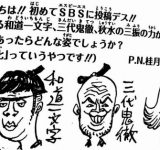 ちは!! 初めてSBSに投稿デス!!
る和道一文字、三代鬼徹、秋水の三振の刀が
あったらどんな姿でしょうか?
とっていうやつです!!)
P.N.桂月
和道一文字
三代鬼徹